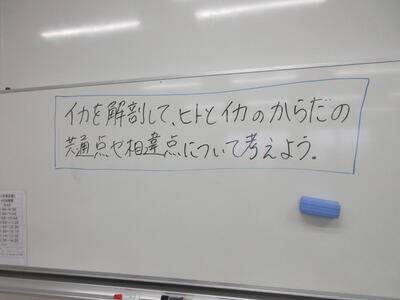 イカを解剖して、ヒトとイカのからだの
共通点や相違点について考えよう。